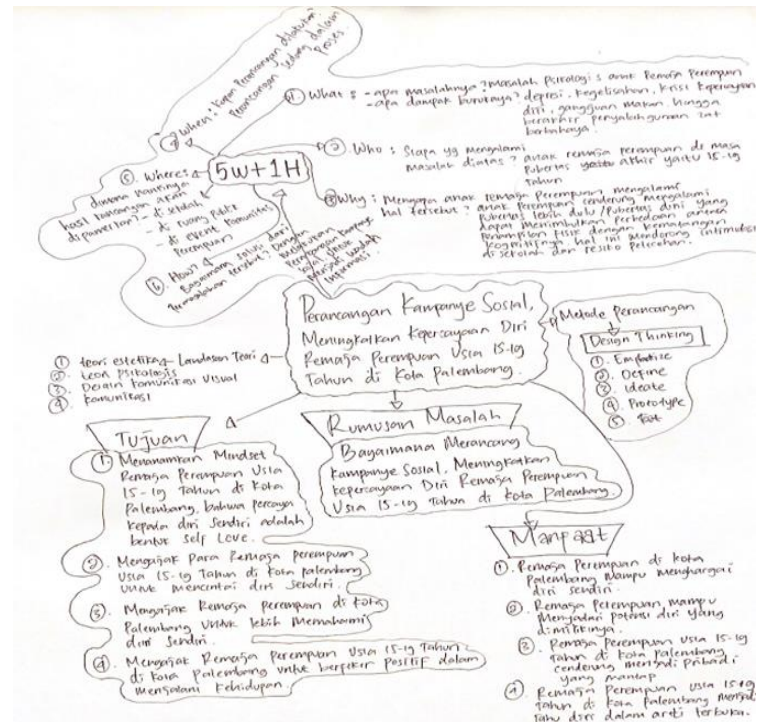 ④ When : Kapan Perancangan dilakukan?
Perancangan sedang dalam
Proses.
① What : - apa masalahnya ? Masalah Psikologis anak Remaja Perempuan
- apa dampak buruknya? depresi, kegelisahan, krisis kepercayaan
diri, gangguan makan, hingga
berakhir penyalahgunaan zat
berbahaya.
5w+1H
② Who : Siapa yg mengalami
masalah diatas ? anak remaja perempuan di masa
Pubertas akhir yaitu 15-19
tahun
③ Why : Mengapa anak remaja Perempuan mengalami
hal tersebut ? anak Perempuan cenderung mengalami
Pubertas lebih dulu / Pubertas dini yang
dapat menimbulkan Perbedaan antara
Penampilan fisik dengan kematangan
kognitifnya hal ini mendorong intimidasi
di sekolah dan resiko pelecehan.
⑤ Where :
dimana nantinya
hasil rancangan akan
dipamerkan? - di sekolah
- di ruang publik
- di event komunitas
Perempuan
⑥ How?
Bagaimana solusi dari
Permasalahan tersebut? Dengan
melakukan
Perancangan kampanye
Sosial untuk
menjadi wadah
informasi.
Perancangan Kampanye Sosial,
Meningkatkan Kepercayaan Diri
Remaja Perempuan Usia 15-19
Tahun di Kota Palembang.
Metode Perancangan
Design Thinking
①. Empathize
②. Define
③. Ideate
④. Prototype
⑤. Test
Landasan Teori
① teori estetika
②. teori Psikologis
③. Desain Komunikasi Visual
④. Komunikasi
Tujuan
①. Menanamkan Mindset
Remaja Perempuan Usia
15-19 Tahun di Kota
Palembang, bahwa percaya
kepada diri sendiri adalah
bentuk self Love.
②. Mengajak Para Remaja perempuan
Usia 15-19 Tahun di Kota palembang
Untuk mencintai diri sendiri.
③. Mengajak Remaja Perempuan di Kota
Palembang Untuk lebih Memahami
diri Sendiri.
④. Mengajak Remaja Perempuan Usia 15-19 Tahun
di Kota Palembang untuk berpikir Positif dalam
menjalani Kehidupan.
Rumusan Masalah
Bagaimana Merancang
Kampanye Sosial, Meningkatkan
kepercayaan Diri Remaja Perempuan
Usia 15-19 Tahun di Kota Palembang.
Manfaat
①. Remaja Perempuan di kota
Palembang mampu menghargai
diri sendiri.
②. Remaja Perempuan mampu
Menyadari Potensi diri yang
dimilikinya.
③. Remaja Perempuan Usia 15-19
Tahun di Kota palembang
cenderung menjadi Pribadi
yang mantap
④. Remaja Perempuan Usia 15-19
Tahun di Kota Palembang menjadi
tahu diri dalam arti terbuka.